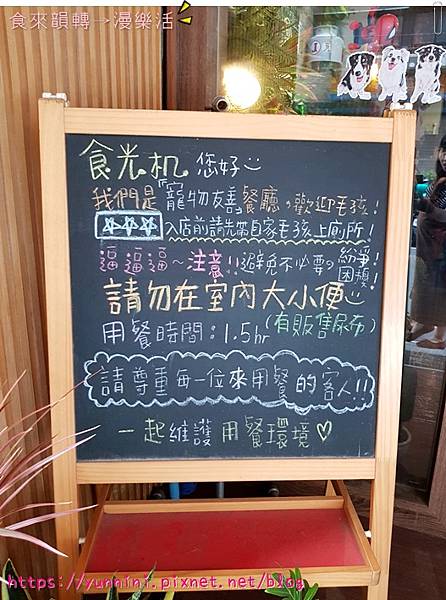 食來韻轉→漫樂活
食光机 您好
我們是『寵物友善』餐廳，歡迎毛孩！
☆☆☆ 入店前請先帶自家毛孩上廁所！
逼逼逼~注意!!避免不必要の紛爭!困擾!
請勿在室內大小便
用餐時間：1.5hr (有販售尿布)
請尊重每一位來用餐的客人!!
一起維護用餐環境♡
https://yunnini.pixnet.net/blog